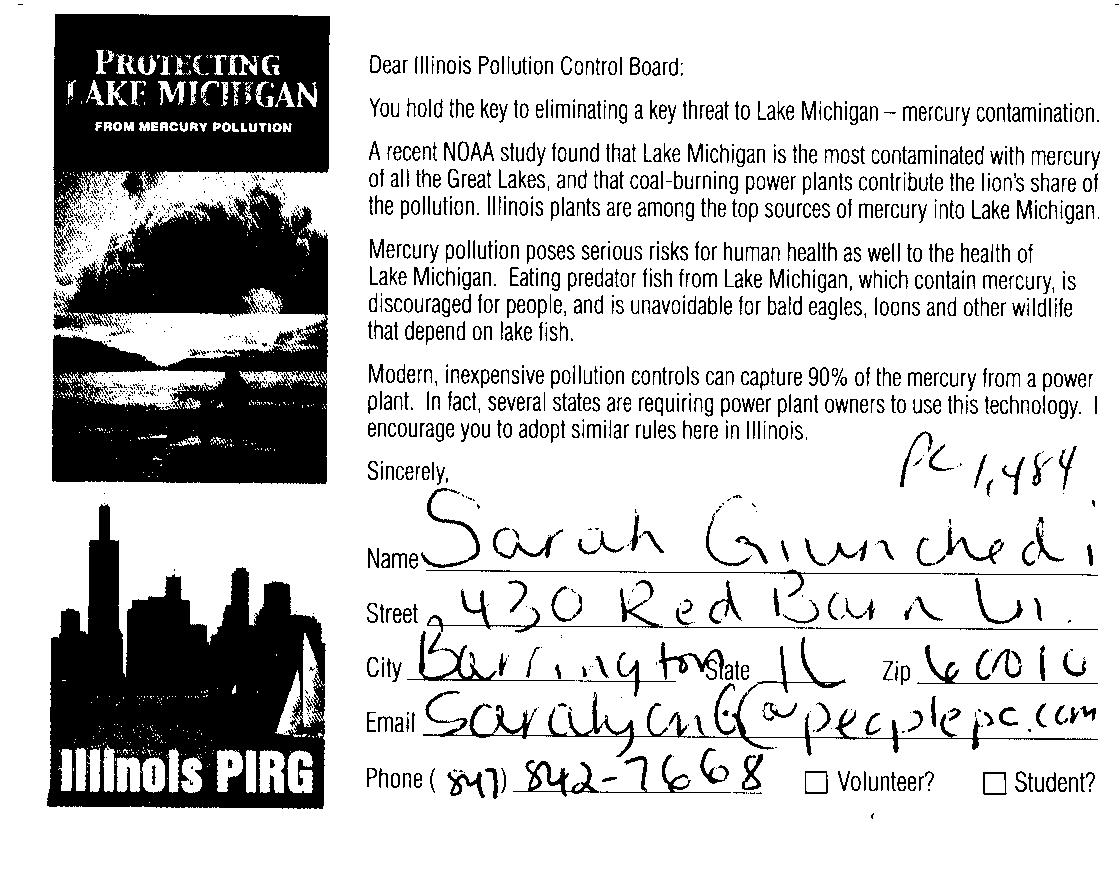 PROTECTING
LAKE MICHIGAN
FROM MERCURY POLLUTION
Illinois PIRG
Dear Illinois Pollution Control Board:
You hold the key to eliminating a key threat to Lake Michigan – mercury contamination.
A recent NOAA study found that Lake Michigan is the most contaminated with mercury
of all the Great Lakes, and that coal-burning power plants contribute the lion's share of
the pollution. Illinois plants are among the top sources of mercury into Lake Michigan.
Mercury pollution poses serious risks for human health as well to the health of
Lake Michigan. Eating predator fish from Lake Michigan, which contain mercury, is
discouraged for people, and is unavoidable for bald eagles, loons and other wildlife
that depend on lake fish.
Modern, inexpensive pollution controls can capture 90% of the mercury from a power
plant. In fact, several states are requiring power plant owners to use this technology. I
encourage you to adopt similar rules here in Illinois.
Sincerely,
PC 1,484
Name Sarah Giunchedi
Street 430 Red Barn
City Barrington State IL Zip 60010
Email @peoplepc.com
Phone (847) 842-7668 Volunteer? Student?